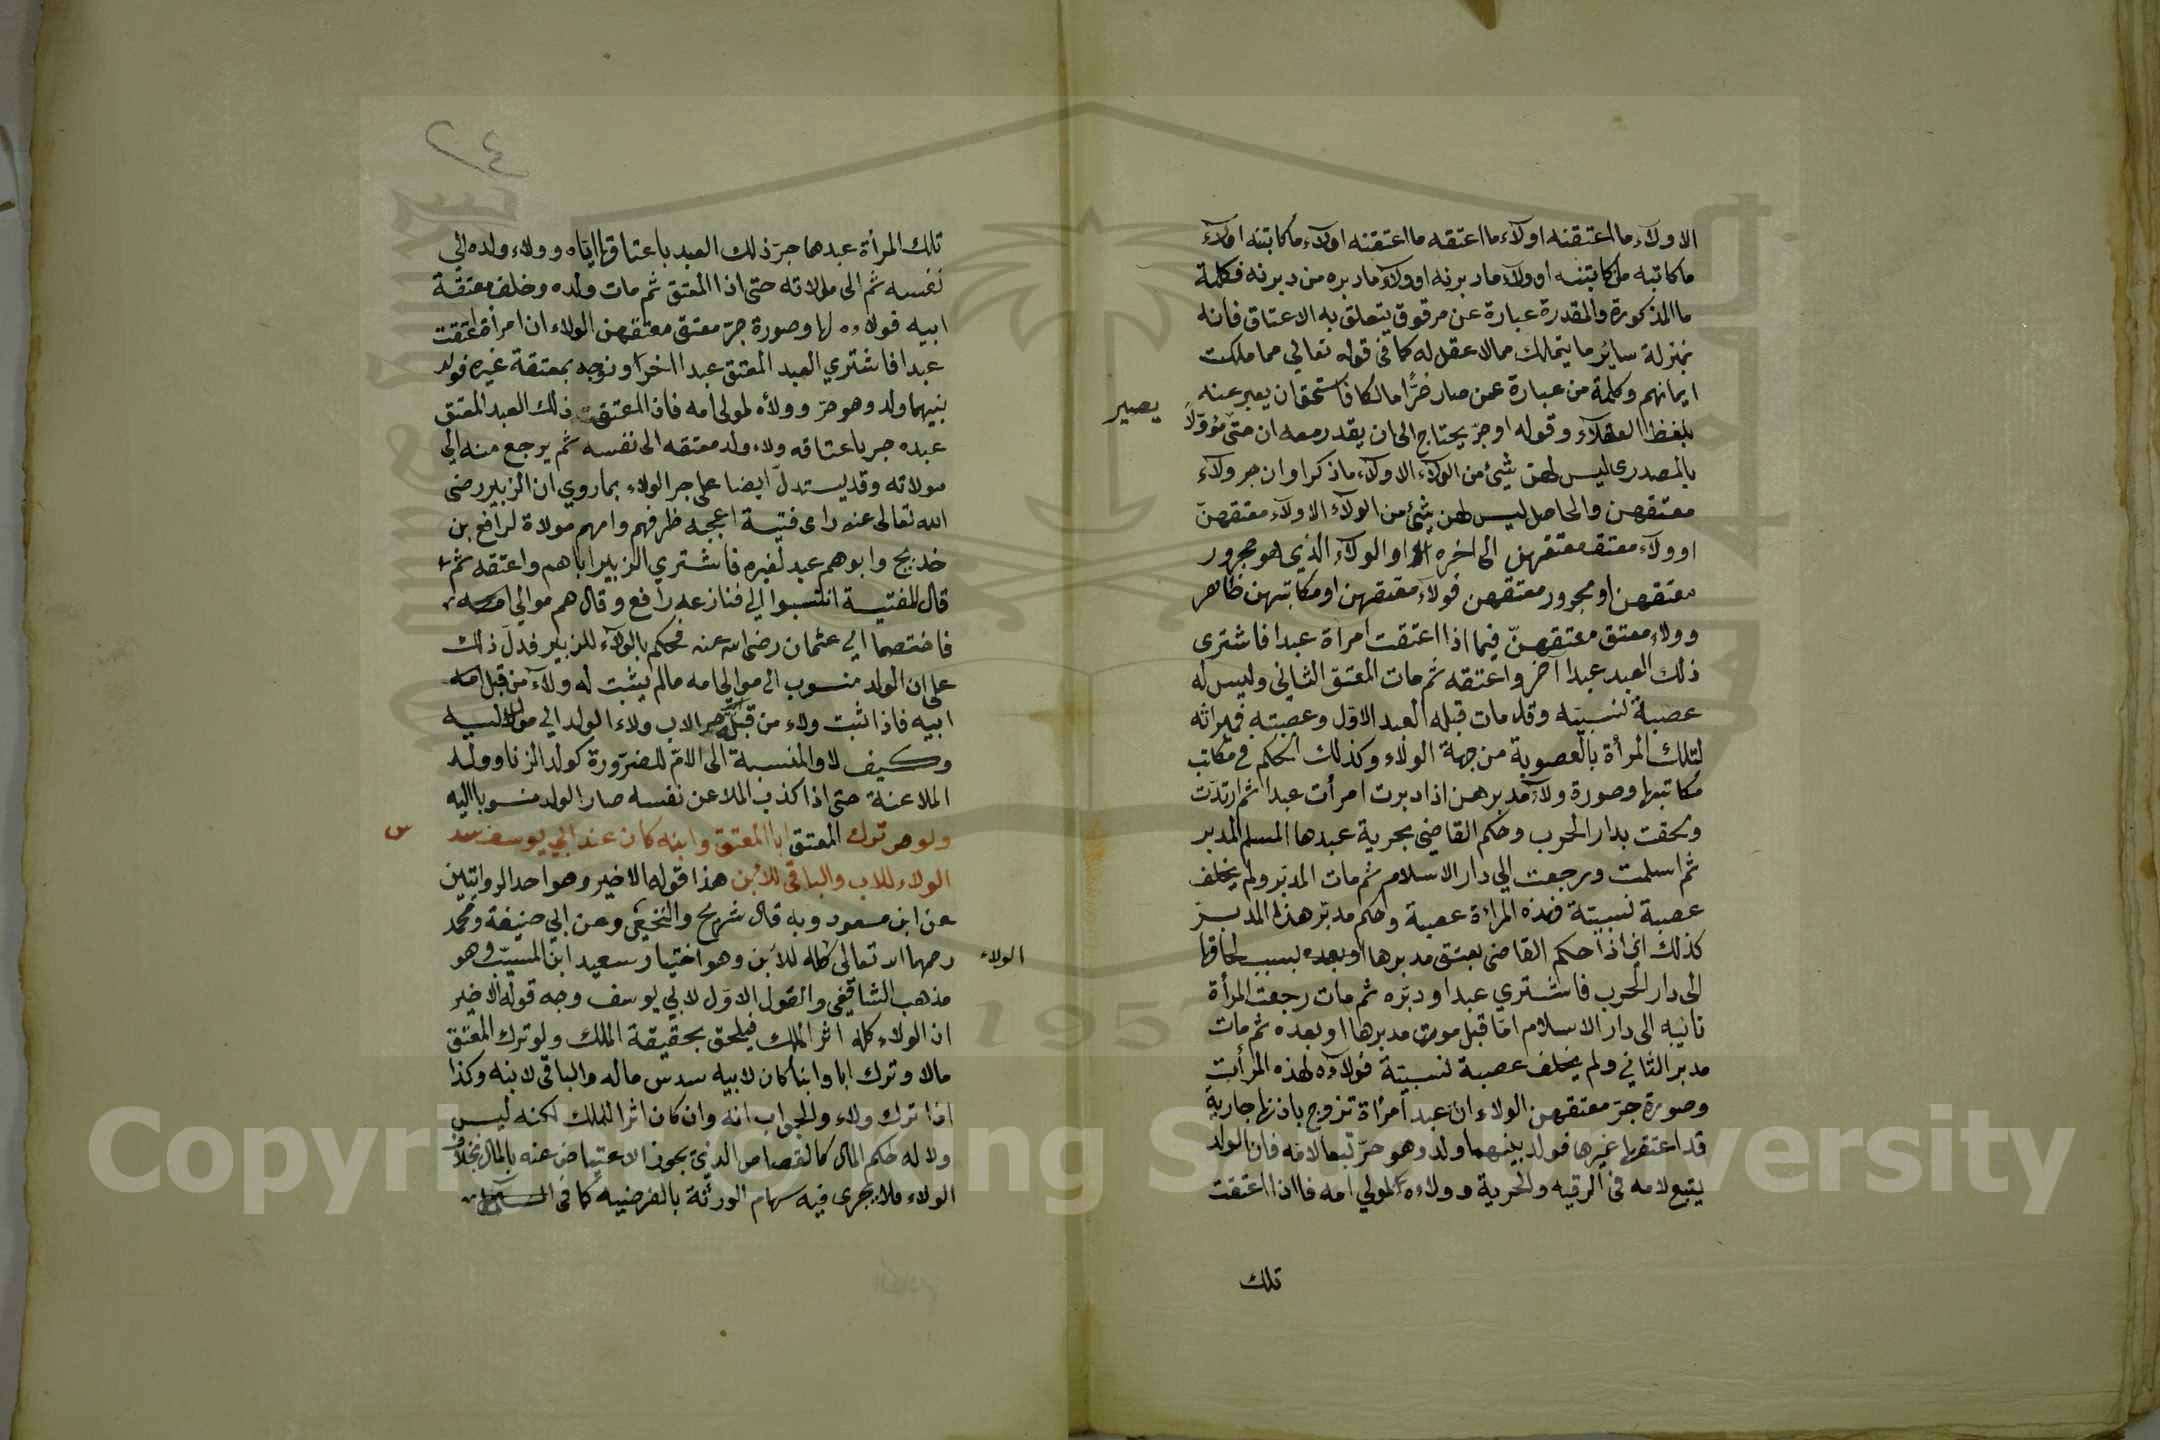 الا ولآء ما اعتقنه او لآء ما اعتقه ما اعتقنه او لآء ما كاتبنه او لآء
ما كاتبه من كاتبنه او ولآء ما دبرنه او ولآء ما دبره من دبرنه فكلمة
ما المذكورة والمقدرة عبارة عن مرقوق يتعلق به الاعتاق فانه
بمنزلة ساير ما يتملك مما لا عقل له كما في قوله تعالي مما ملكت
ايمانهم وكلمة من عبارة عمن صار حرًا مالكا فاستحق ان يعبر عنه
بلفظ العقلآء وقوله او جرّ يحتاج الى ان يقدر معه ان حتى مؤوّلاً
يصير
بالمصدر اي ليس لهن شيئ من الولآء الا ولآء ما ذكر او ان جر ولآء
معتقهن والحاصل ليس لهن شيئ من الولآء الا ولآء معتقهنّ
او ولآء معتق معتقهن الى اخره او الولآء الذي هو مجرور
معتقهن او مجرور معتقهن فولآء معتقهن او مكاتبهن ظاهر
وولاء معتق معتقهنّ فيما اذا اعتقت امرأة عبدا فاشترى
ذلك العبد عبدا آخر واعتقه ثم مات المعتق الثاني وليس له
عصبة نسبيّه وقد مات قبله العبد الاوّل وعصبته فميراثه
لتلك المرأة بالعصوبة من جهة الولاء وكذلك الحكم في مكاتب
مكاتبها وصورة ولآء مدبرهن اذا دبرت امرأت عبدا ثم ارتدّت
ولحقت بدار الحرب وحكم القاضي بحرية عبدها المسلم المدبر
ثم اسلمت ورجعت الي دار الاسلام ثم مات المدبّر ولم يخلف
عصبة نسبيّة فهذه المراءة عصبة وحكم مدبّر هذا المدبّر
كذلك اي اذا حكم القاضي بعتق مدبرها او بعده بسبب لحاقها
الى دار الحرب فاشتري عبدا ودبّره ثم مات رجعت المرأة
تانيه الى دار الاسلام امّا قبل موت مدبرها او بعده ثم مات
مدبر الثاني ولم يخلف عصبة نسبيّة فولآؤه لهذه المرأت
وصورة جرّ معتقهن الولاء ان عبد أمرأة تزوج باذنها جارية
قد اعتقها غيرها فولد بينهما ولد وهو حرّ تبعا لامّه فان الولد
يتبع لامه في الرقيه والحرية وولاءه لمولي امه فااذا اعتقت
تلك
تلك المرأة عبدها جرّ ذلك العبد باعتاقها ايّاه وولاء ولده الي
نفسه ثم الى مولاته حتى اذا المعتق ثم مات ولده وخلف معتقة
ابيه فولاءه لها وصورة جرّ معتق معتقهن الولاء ان امرأة اعتقت
عبدا فاشتري العبد المعتق عبدا اخر او زوجه بمعتقة غيره فولد
بينهما ولد وهو حرّ وولأه لمولى امه فاذا اعتق ذلك العبد المعتق
عبده جر باعتاقه ولاء ولد معتقه الى نفسه ثم يرجع منه الي
مولاته وقد يستدلّ ايضا على جر الولاء بما روي ان الزبير رضي
الله تعالى عنه راى فتية اعجبه ظرفهم وامهم مولاة لرافع بن
خديج وابوهم عبد لغيره فاشتري الزبير اباهم واعتقه ثم
قال للفتية انتسبوا الي فنازعه رافع وقال هم موالي امه
فاختصما الي عثمان رضي الله عنه فحكم بالولآء للزبير فدلّ ذلك
على ان الولد منسوب الى موالي امه ما لم يثبت له ولآء من قبل
ابيه فاذا ثبت ولاء من قبله جر الاب ولاء الولد الي مولا ابيه
وكيف لا والنسبة الى الامّ للضرّورة كولد الزنا وولد
الملاعنة حتى اذا كذب الملاعن نفسه صار الولد منسوبا اليه
ولو ترك المعتق ابا المعتق وابنه كان عند ابي يوسف سد
س
الولاء للاب والباقي للابن هذا قوله الاخير وهو احد الروايتين
عن ابن مسعود وبه قال شريح والنخعي وعن ابي حنيفة ومحمد
رحمهما الله تعالى كله للابن وهو اختيار سعيد ابن المسيّب وهو
الولاء
مذهب الشافعي والقول الاوّل لابي يوسف وجه قوله الاخير
ان الولاء كله اثر الملك فيلحق بحقيقة الملك ولو ترك المعتق
مالا وترك ابا وابنا كان لابيه سدس ماله والباقي لابنه وكذا
اذا ترك ولاء والجواب انه وان كان اثر الملك لكنه ليس
ولا له حكم المال كالقصاص الذي يجوز الاعتياض عنه بالمال بخلاف
الولاء فلا يجري فيه سهام الورثة بالفرضيه كما في
٢٤